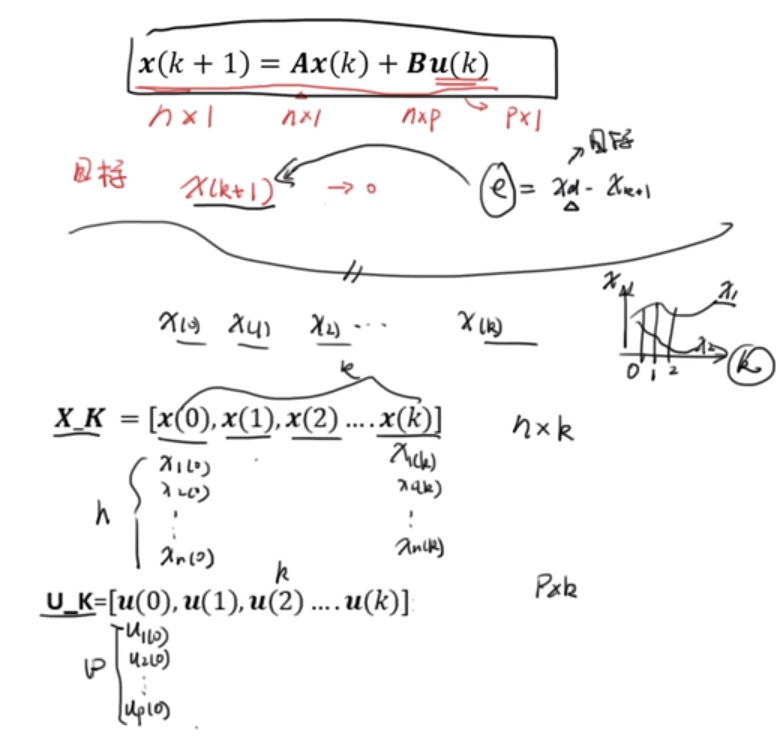 x(k + 1) = Ax(k) + Bu(k)
n×1 n×1 n×p p×1
目标
目标 x(k+1) → 0 e = xd - xk+1
x(0) x(1) x(2) ··· x(k)
x x1 x2
0 1 2 k
k
X_K = [x(0), x(1), x(2) .... x(k)] n×k
x1(0) x1(k)
x2(0) x2(k)
n ⋮ ⋮
xn(0) xn(k)
k
U_K=[u(0), u(1), u(2) .... u(k)] p×k
u1(0)
p u2(0)
⋮
up(0)